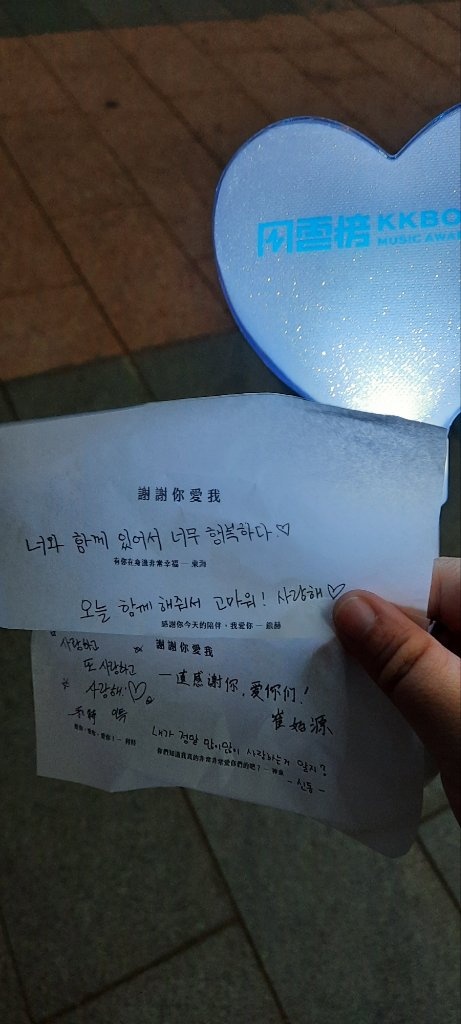 風雲榜 KKBO
MUSIC AWA
謝謝你愛我
너와 함께 있어서 너무 행복하다.♡
有你在身邊非常幸福 — 東海
오늘 함께 해줘서 고마워! 사랑해♡
感謝你今天的陪伴，我愛你 — 銀赫
謝謝你愛我
사랑하고
또 사랑하고
사랑해!♡
이특
愛你，愛你，愛你！— 利特
一直感謝你, 愛你们!
崔始源
내가 정말 많이많이 사랑하는거 알지?
你們知道我真的非常非常愛你們的吧？— 神童
- 신동 -